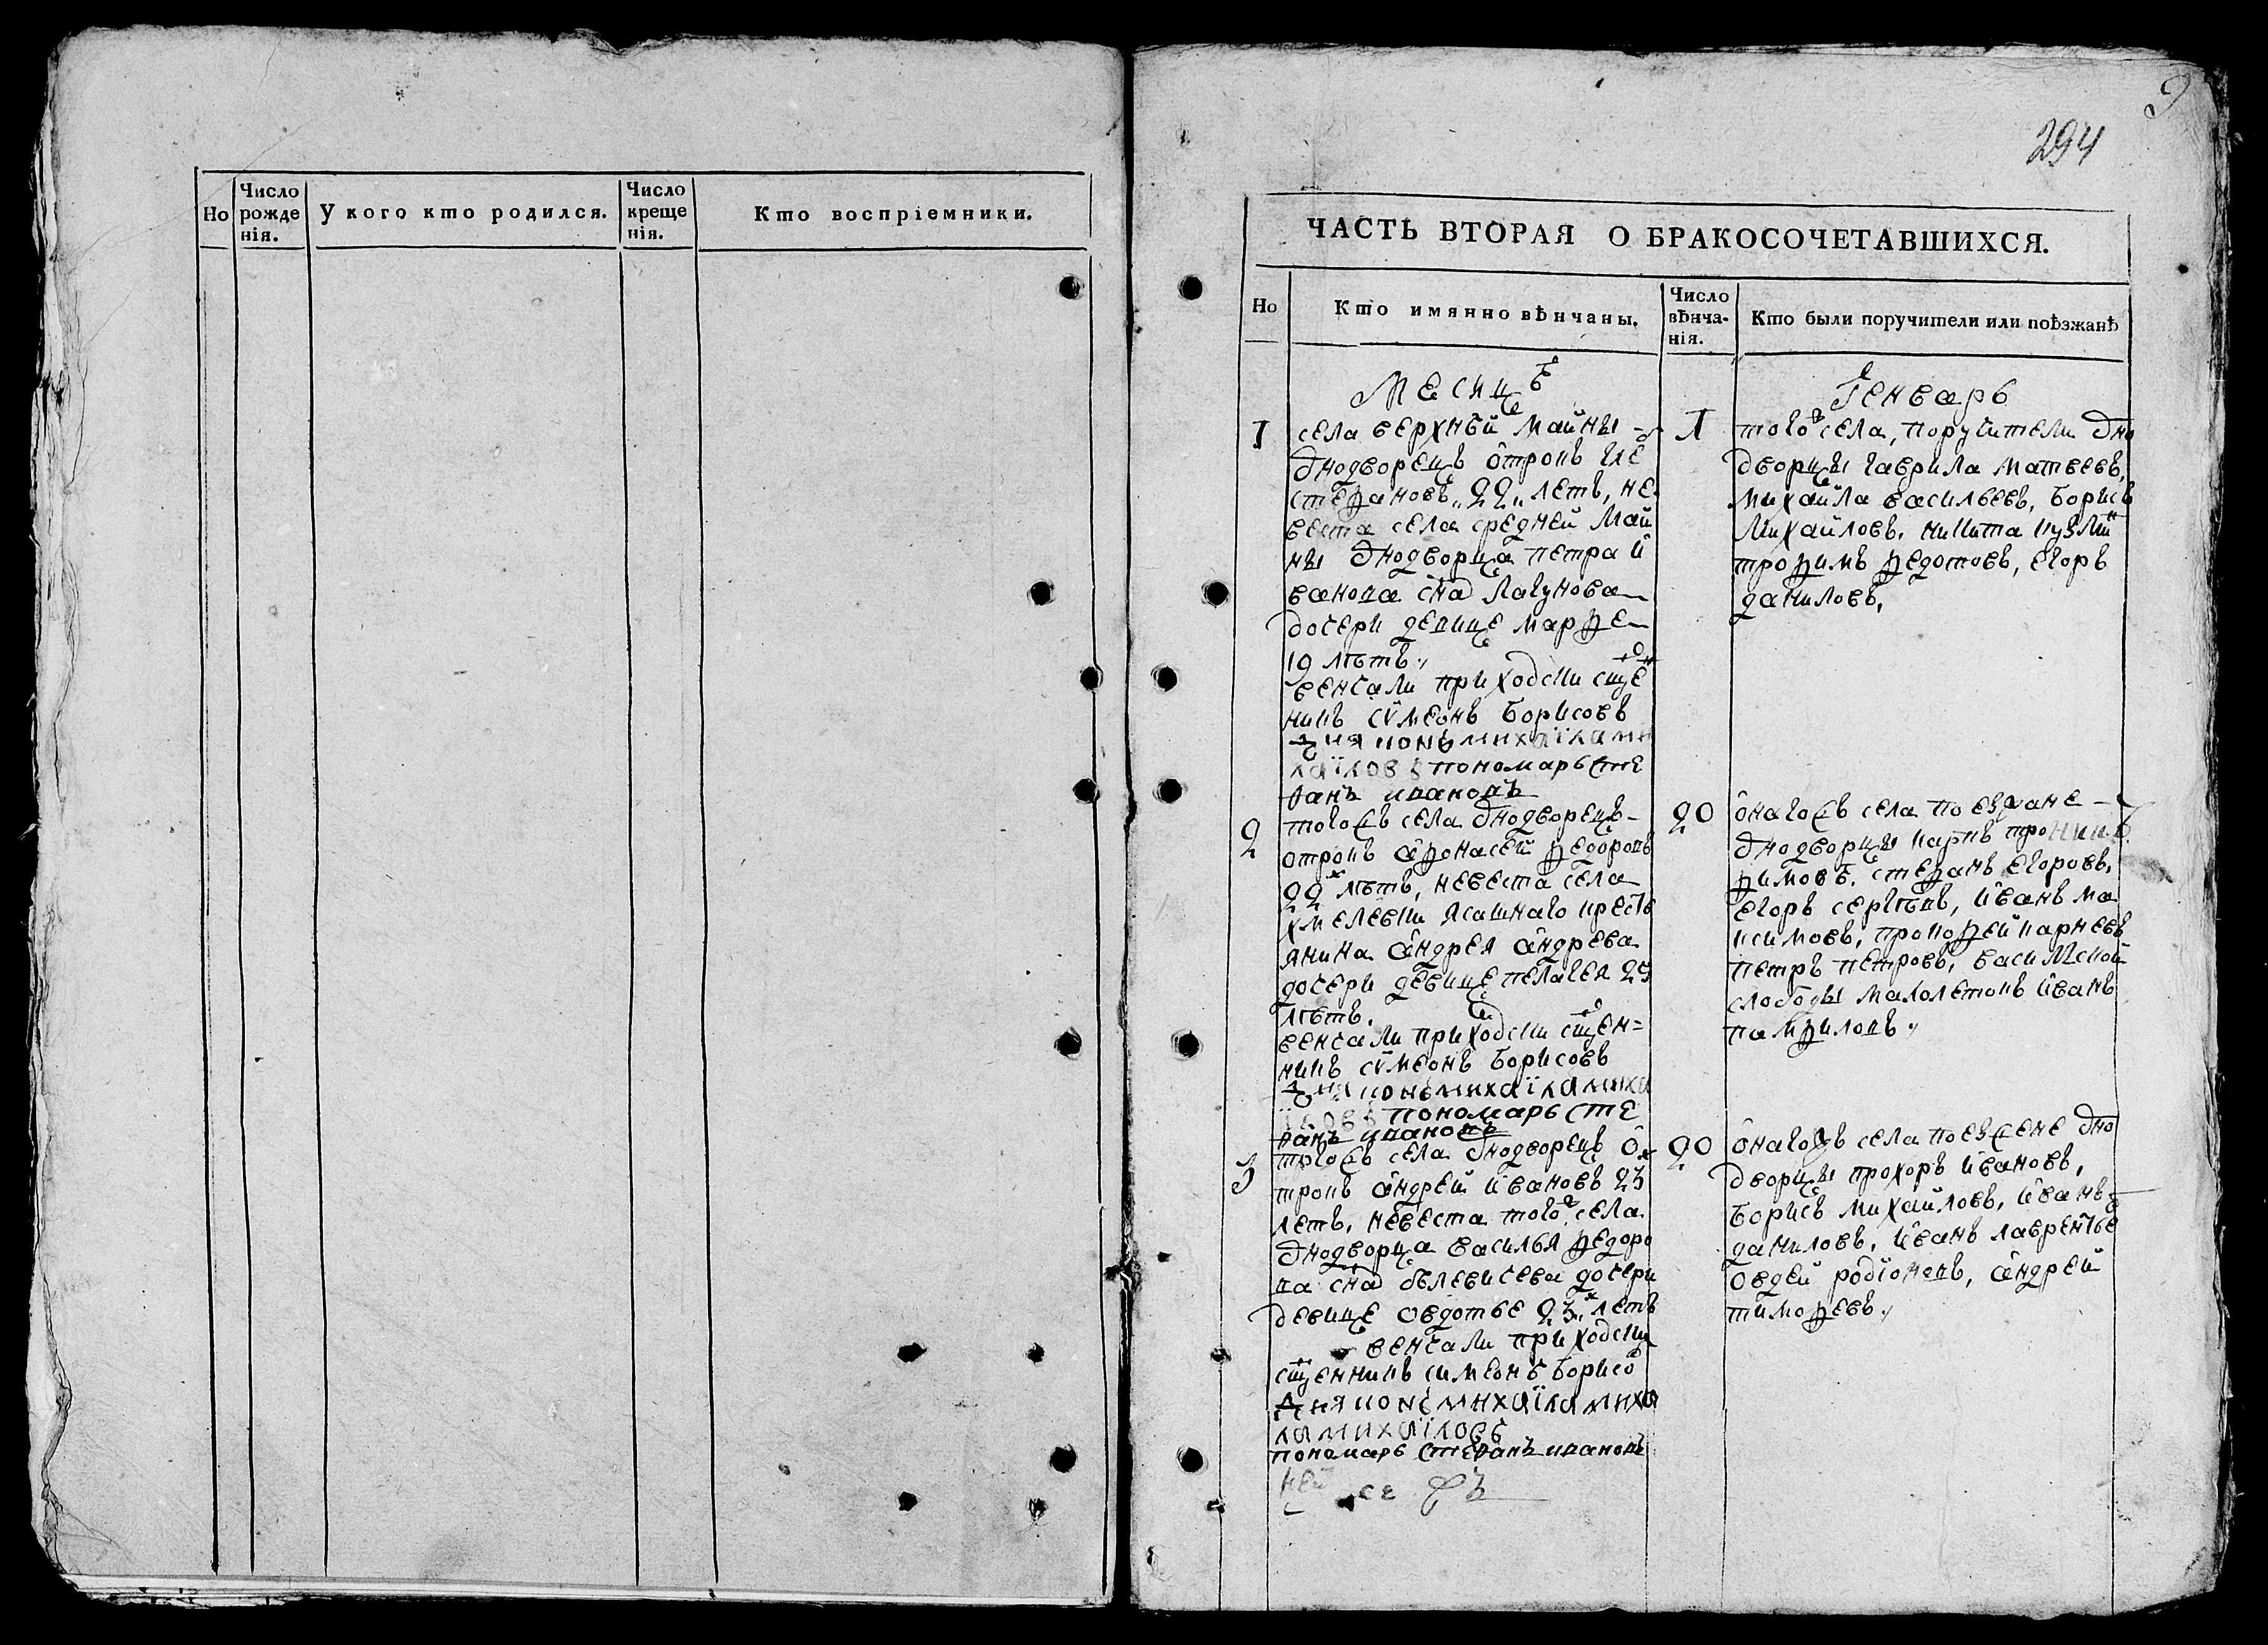 Но
Число рожденія.
У кого кто родился.
Число крещенія.
Кто воспріемники.
294
ЧАСТЬ ВТОРАЯ О БРАКОСОЧЕТАВШИХСЯ.
Но
Кто имянно вѣнчаны.
Число вѣнчанія.
Кто были поручители или поѣзжанѣ
Месицъ
Генварь
1
села верхнѣй майны о
днодворецъ отрокъ
степановъ 22 летъ, не
веста села средней май
ны однодворца петра и
ванова сна лагунова
дочери девице марфе
19 лѣтъ
венчали приходски сщен
никъ сѵмеонъ борисовъ
дияконъ михаила ми
хаиловъ пономарь сте
фанъ ивановъ
1
того ж села, поручители одно
дворцы гаврила матвеевъ,
михайла васильевъ, борисъ
михайловъ, никита кузмин
трофимъ федотовъ, егоръ
даниловъ,
2
тогожъ села однодворецъ
отрокъ афонасей федоровъ
22 х лѣтъ, невеста села
хмелевки ясашнаго кресть
янина андрея андрева
дочери девице пелагея 25
лѣтъ.
венчали приходски сщен=
никъ сѵмеонъ борисовъ
дияконъ михаила миха
иловъ пономарь сте
фанъ ивановъ
20
онагожъ села поезжане
однодворцы карпъ
фимовъ. стефанъ егоровъ,
егоръ сергѣвъ, иванъ ма
ксимовъ, прокофей карнеевъ
петръ петровъ,
слободы малолетокъ иванъ
памфиловъ
3
тогожъ села однодворецъ о
трокъ андрей ивановъ 23
летъ, невеста того ж села
однодворца василья федоро
ва сна дочери
девице овдотье 23 х летъ
венчали приходски
сщенникъ симеонъ борисо
дияконъ михаила миха
ла михаиловъ
пономарь стефанъ ивановъ
20
онагожъ села поезжене одно
дворцы прохоръ ивановъ,
борисъ михайловъ, иванъ
даниловъ, иванъ лаврентье
овдей родіоновъ, андрей
тимофевъ